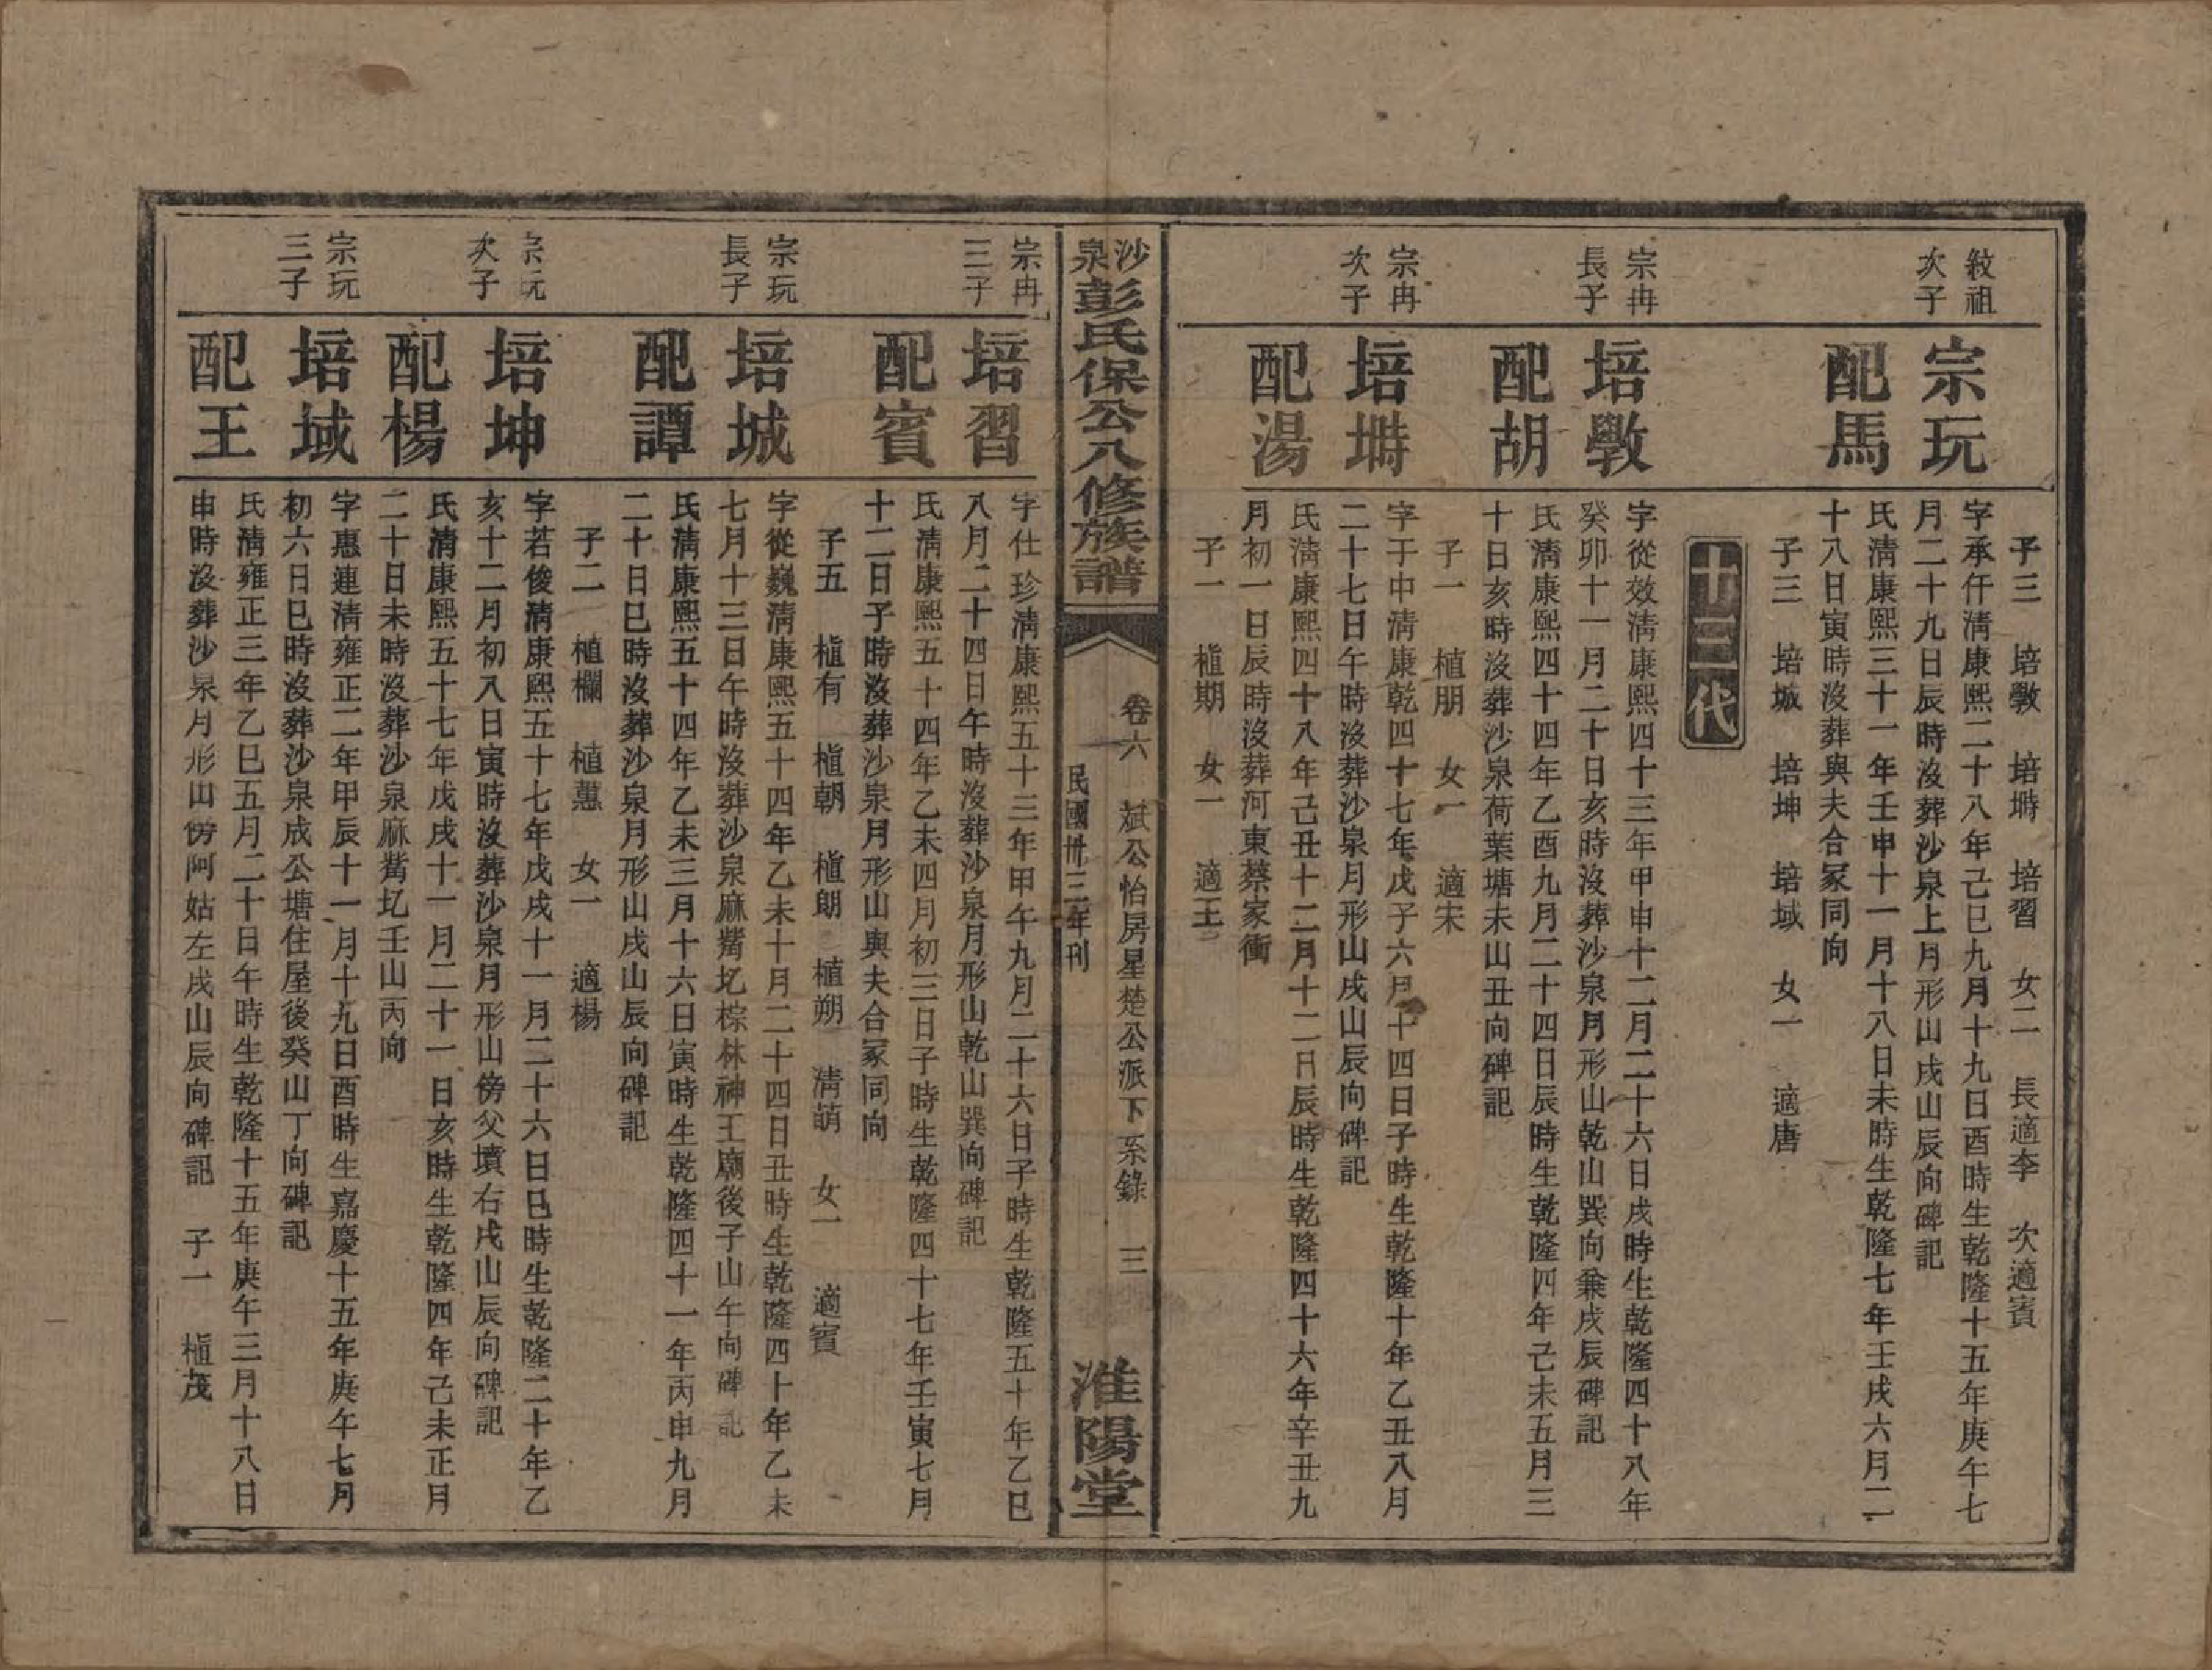 子三　培斆　培塒　培習　女二　長適李　次適賓
紋祖次子
宗玩
字承仟清康熙二十八年己巳九月十九日酉時生乾隆十五年庚午七
月二十九日辰時沒葬沙泉上月形山戌山辰向碑記
配馬
氏清康熙三十一年壬申十一月十八日未時生乾隆七年壬戌六月二
十八日寅時沒葬與夫合冢同向
子三　培城　培坤　培域　女一　適唐
十三代
宗冉長子
培斆
字從效清康熙四十三年甲申十二月二十六日戌時生乾隆四十八年
癸卯十一月二十日亥時沒葬沙泉月形山乾山巽向兼戌辰碑記
配胡
氏清康熙四十四年乙酉九月二十四日辰時生乾隆四年己未五月三
十日亥時沒葬沙泉荷葉塘未山丑向碑記
子一　植朋　女一　適宋
宗冉次子
培塒
字于中清康乾四十七年戊子六月十四日子時生乾隆十年乙丑八月
二十七日午時沒葬沙泉月形山戌山辰向碑記
配湯
氏清康熙四十八年己丑十二月十二日辰時生乾隆四十六年辛丑九
月初一日辰時沒葬河東蔡家衝
子一　植期　女一　適王
沙泉彭氏保公八修族譜
卷六　斌公怡房星楚公派下系錄　三
民國卅三年刊
淮陽堂
宗冉三子
培習
字仕珍清康熙五十三年甲午九月二十六日子時生乾隆五十年乙巳
八月二十四日午時沒葬沙泉月形山乾山巽向碑記
配賓
氏清康熙五十四年乙未四月初三日子時生乾隆四十七年壬寅七月
十二日子時沒葬沙泉月形山與夫合冢同向
子五　植有　植朝　植朗　植朔　清萌　女一　適賓
宗玩長子
培城
字從巍清康熙五十四年乙未十月二十四日丑時生乾隆四十年乙未
七月十三日午時沒葬沙泉麻觜圪棕林神王廟後子山午向碑記
配譚
氏清康熙五十四年乙未三月十六日寅時生乾隆四十一年丙申九月
二十日巳時沒葬沙泉月形山戌山辰向碑記
子二　植欄　植蕙　女一　適楊
宗玩次子
培坤
字若俊清康熙五十七年戊戌十一月二十六日巳時生乾隆二十年乙
亥十二月初八日寅時沒葬沙泉月形山傍父墳右戌山辰向碑記
配楊
氏清康熙五十七年戊戌十一月二十一日亥時生乾隆四年己未正月
二十日未時沒葬沙泉麻觜圪壬山丙向
宗玩三子
培域
字惠連清雍正二年甲辰十一月十九日酉時生嘉慶十五年庚午七月
初六日巳時沒葬沙泉成公塘住屋後癸山丁向碑記
配王
氏清雍正三年乙巳五月二十日午時生乾隆十五年庚午三月十八日
申時沒葬沙泉月形山傍阿姑左戌山辰向碑記　子一　植茂